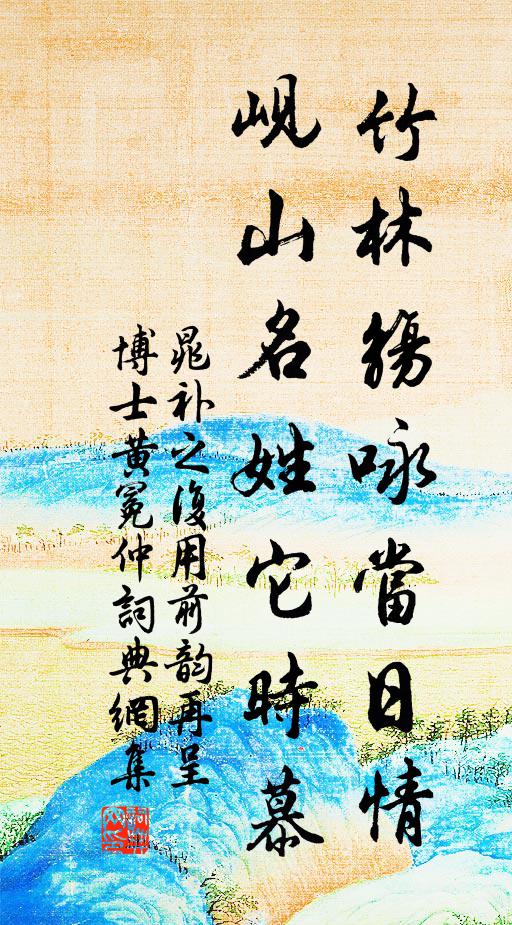 竹林觴咏當日情
峴山名姓它時慕
晁补之復用前韵再呈
博士黄冕仲詞典網集